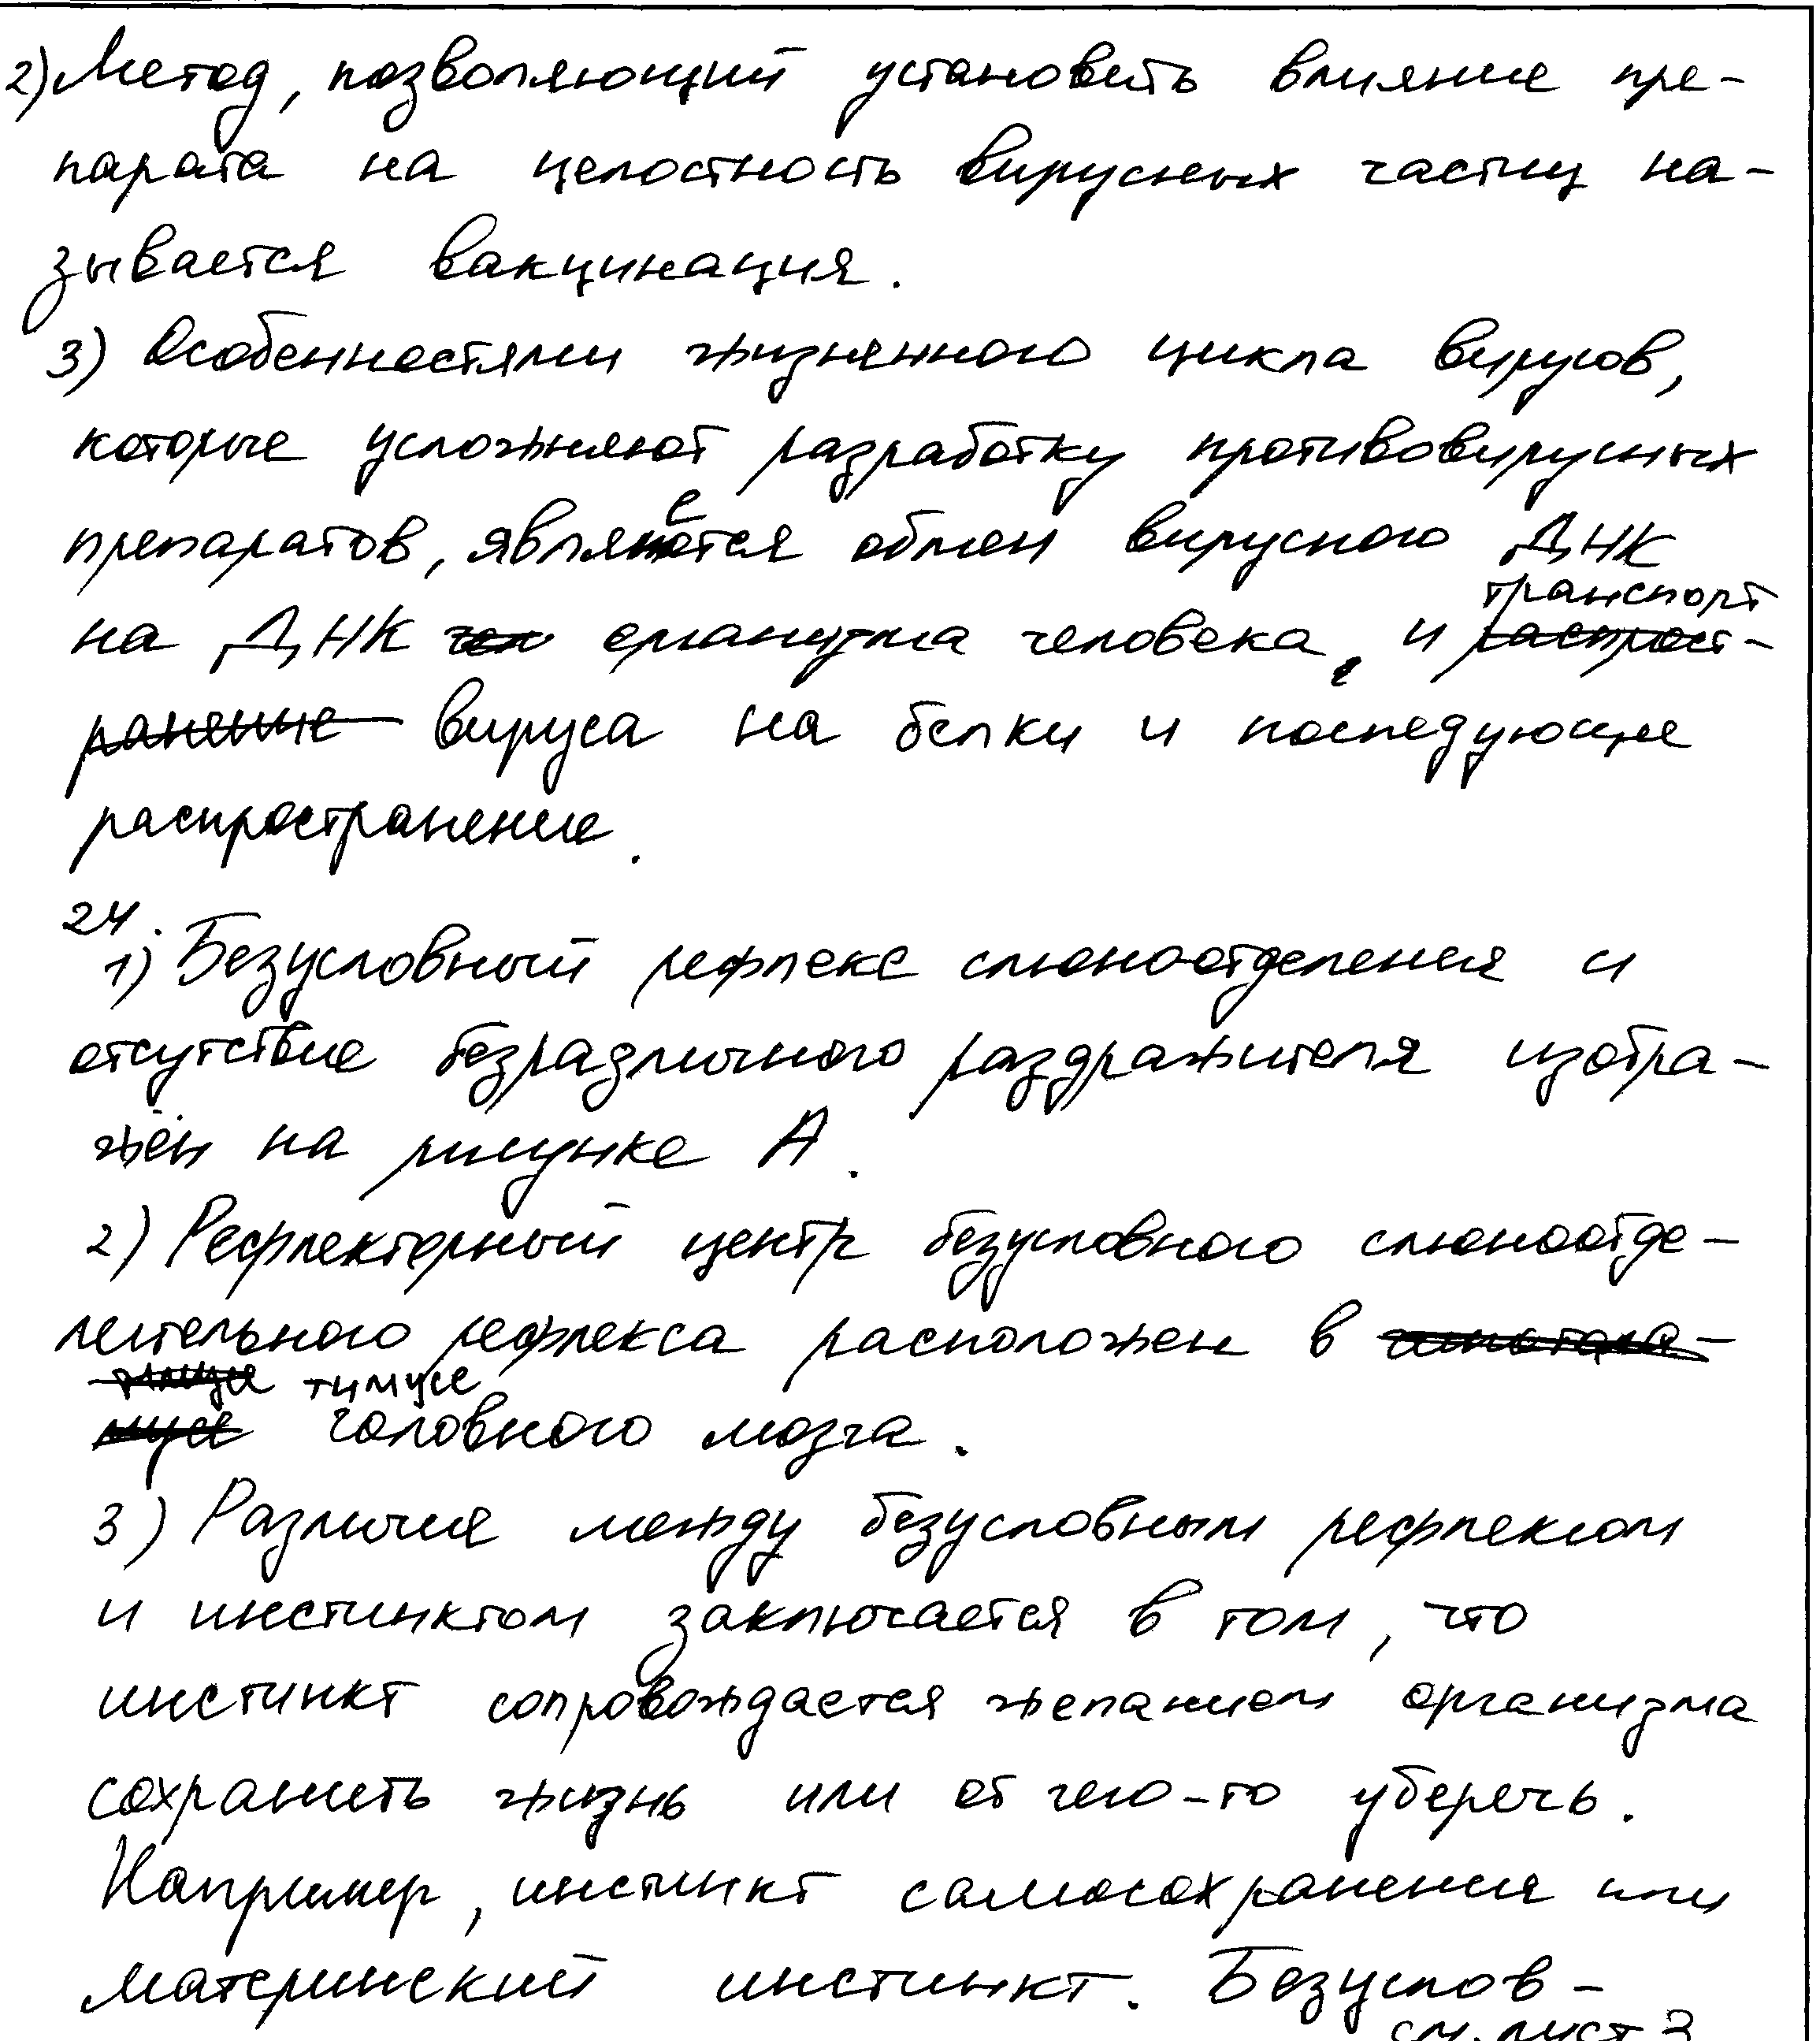 2) Метод, позволяющий установить влияние пре-
парата на целостность вирусных частиц на-
зывается вакцинация.
3) Особенностями жизненного цикла вирусов,
которые усложняют разработку противовирусных
препаратов, является обмен вирусного ДНК
на ДНК чел организма человека, и распрост- транспорт
ранение вируса на белки и последующее
распространение.
24.
1) Безусловный рефлекс слюноотделения и
отсутствие безразличного раздражителя изобра-
жён на рисунке А.
2) Рефлекторный центр безусловного слюноотде-
лительного рефлекса расположен в гипотала-
тимусе
мусе головного мозга.
3) Различия между безусловным рефлексом
и инстинктом заключается в том, что
инстинкт сопровождается желанием организма
сохранить жизнь или от чего-то уберечь.
Например, инстинкт самосохранения или
материнский инстинкт. Безуслов-
см. лист 3